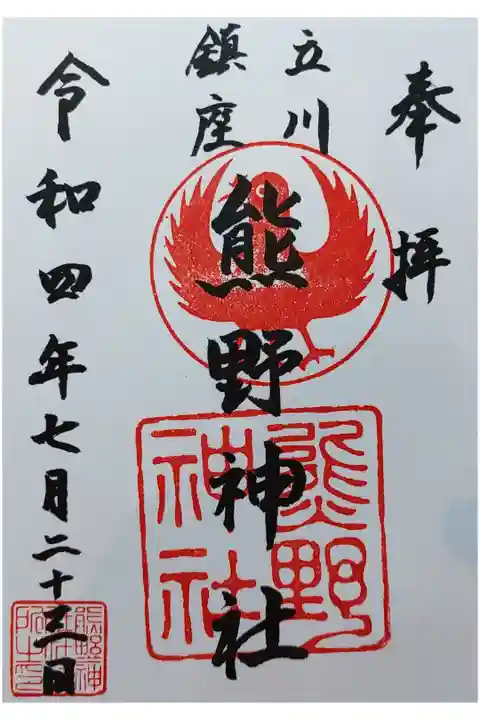 奉拝
立川
鎮座
熊野神社
熊野
神社
令和四年七月二十三日